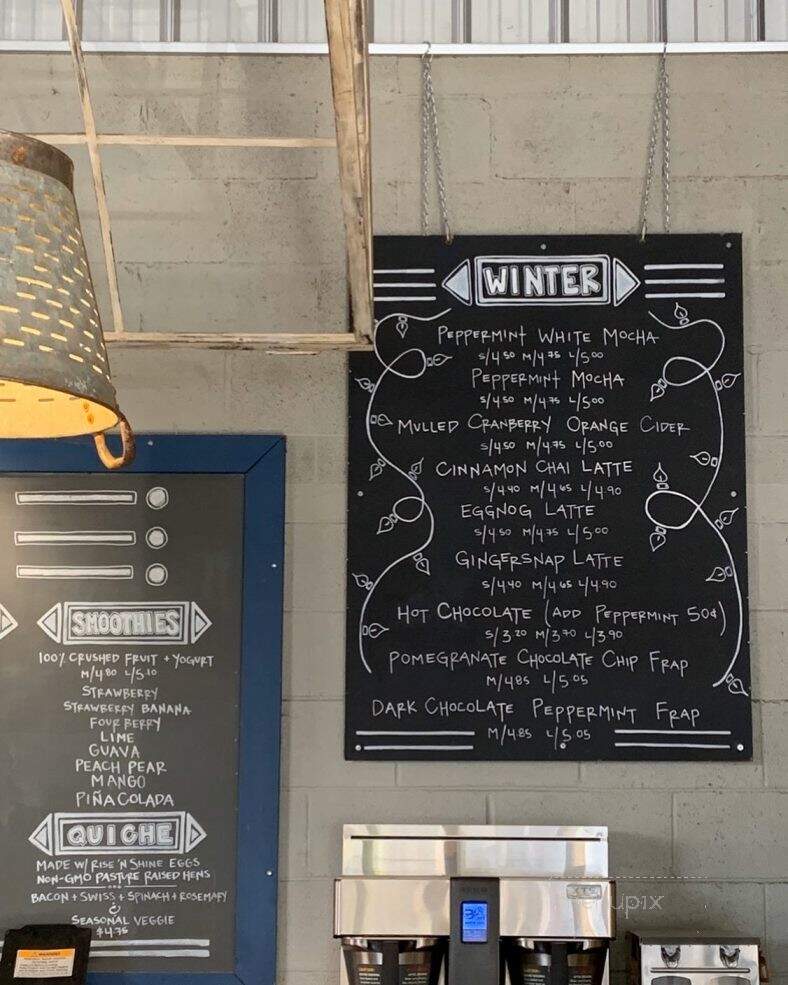 WINTER
PEPPERMINT WHITE MOCHA
S/4.50 M/4.75 L/5.00
PEPPERMINT MOCHA
S/4.50 M/4.75 L/5.00
MULLED CRANBERRY ORANGE CIDER
S/4.50 M/4.75 L/5.00
CINNAMON CHAI LATTE
S/4.40 M/4.65 L/4.90
EGGNOG LATTE
S/4.50 M/4.75 L/5.00
GINGERSNAP LATTE
S/4.40 M/4.65 L/4.90
HOT CHOCOLATE (ADD PEPPERMINT 50¢)
S/3.20 M/3.70 L/3.90
POMEGRANATE CHOCOLATE CHIP FRAP
M/4.85 L/5.05
DARK CHOCOLATE PEPPERMINT FRAP
M/4.85 L/5.05
SMOOTHIES
100% CRUSHED FRUIT + YOGURT
M/4.80 L/5.10
STRAWBERRY
STRAWBERRY BANANA
FOUR BERRY
LIME
GUAVA
PEACH PEAR
MANGO
PIÑA COLADA
QUICHE
MADE W/ RISE 'N SHINE EGGS
NON-GMO PASTURE RAISED HENS
BACON + SWISS + SPINACH + ROSEMARY
&
SEASONAL VEGGIE
$4.75